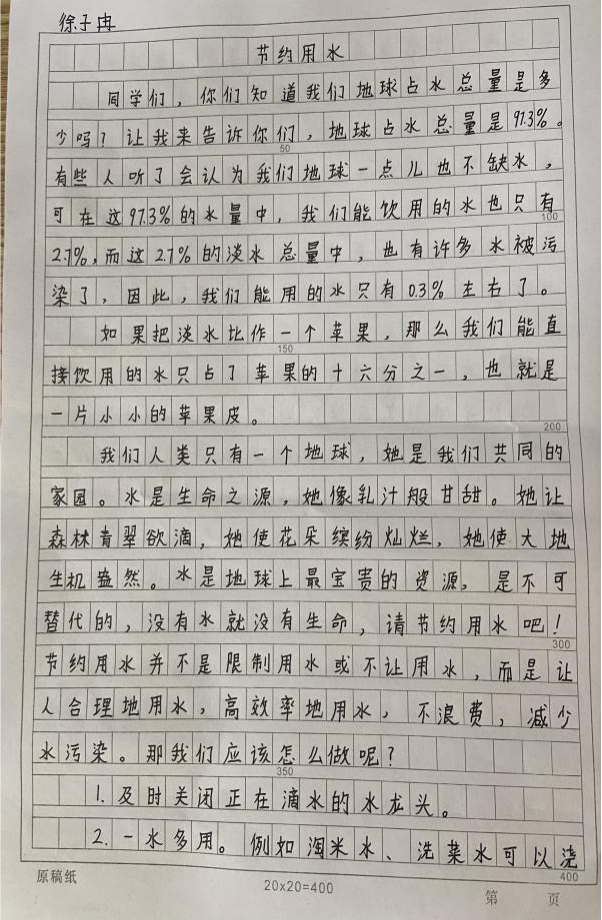 徐子冉
节约用水
同学们，你们知道我们地球占水总量是多
少吗？让我来告诉你们，地球占水总量是97.3%。
50
有些人听了会认为我们地球一点儿也不缺水，
可在这97.3%的水量中，我们能饮用的水也只有
100
2.7%，而这2.7%的淡水总量中，也有许多水被污
染了，因此，我们能用的水只有0.3%左右了。
如果把淡水比作一个苹果，那么我们能直
150
接饮用的水只占了苹果的十六分之一，也就是
一片小小的苹果皮。
200
我们人类只有一个地球，她是我们共同的
家园。水是生命之源，她像乳汁般甘甜。她让
森林青翠欲滴，她使花朵缤纷灿烂，她使大地
生机盎然。水是地球上最宝贵的资源，是不可
替代的，没有水就没有生命，请节约用水吧！
300
节约用水并不是限制用水或不让用水，而是让
人合理地用水，高效率地用水，不浪费，减少
水污染。那我们应该怎么做呢？
350
1.及时关闭正在滴水的水龙头。
2.一水多用。例如淘米水、洗菜水可以浇
原稿纸
20x20=400
400
第 页